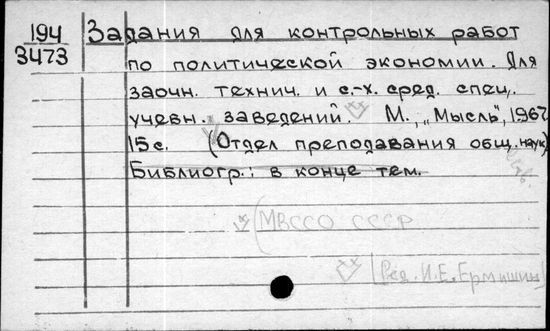 194
3473
Задания для контрольных работ
по политической экономии. Для
заочн. технич. и с.-х. сред. спец.
учебн. заведений. М., „Мысль", 1967
15 с. (Отдел преподавания общ. наук)
Библиогр.: в конце тем.
(МВССО СССР
[Ред. И.Е. Ермишин]